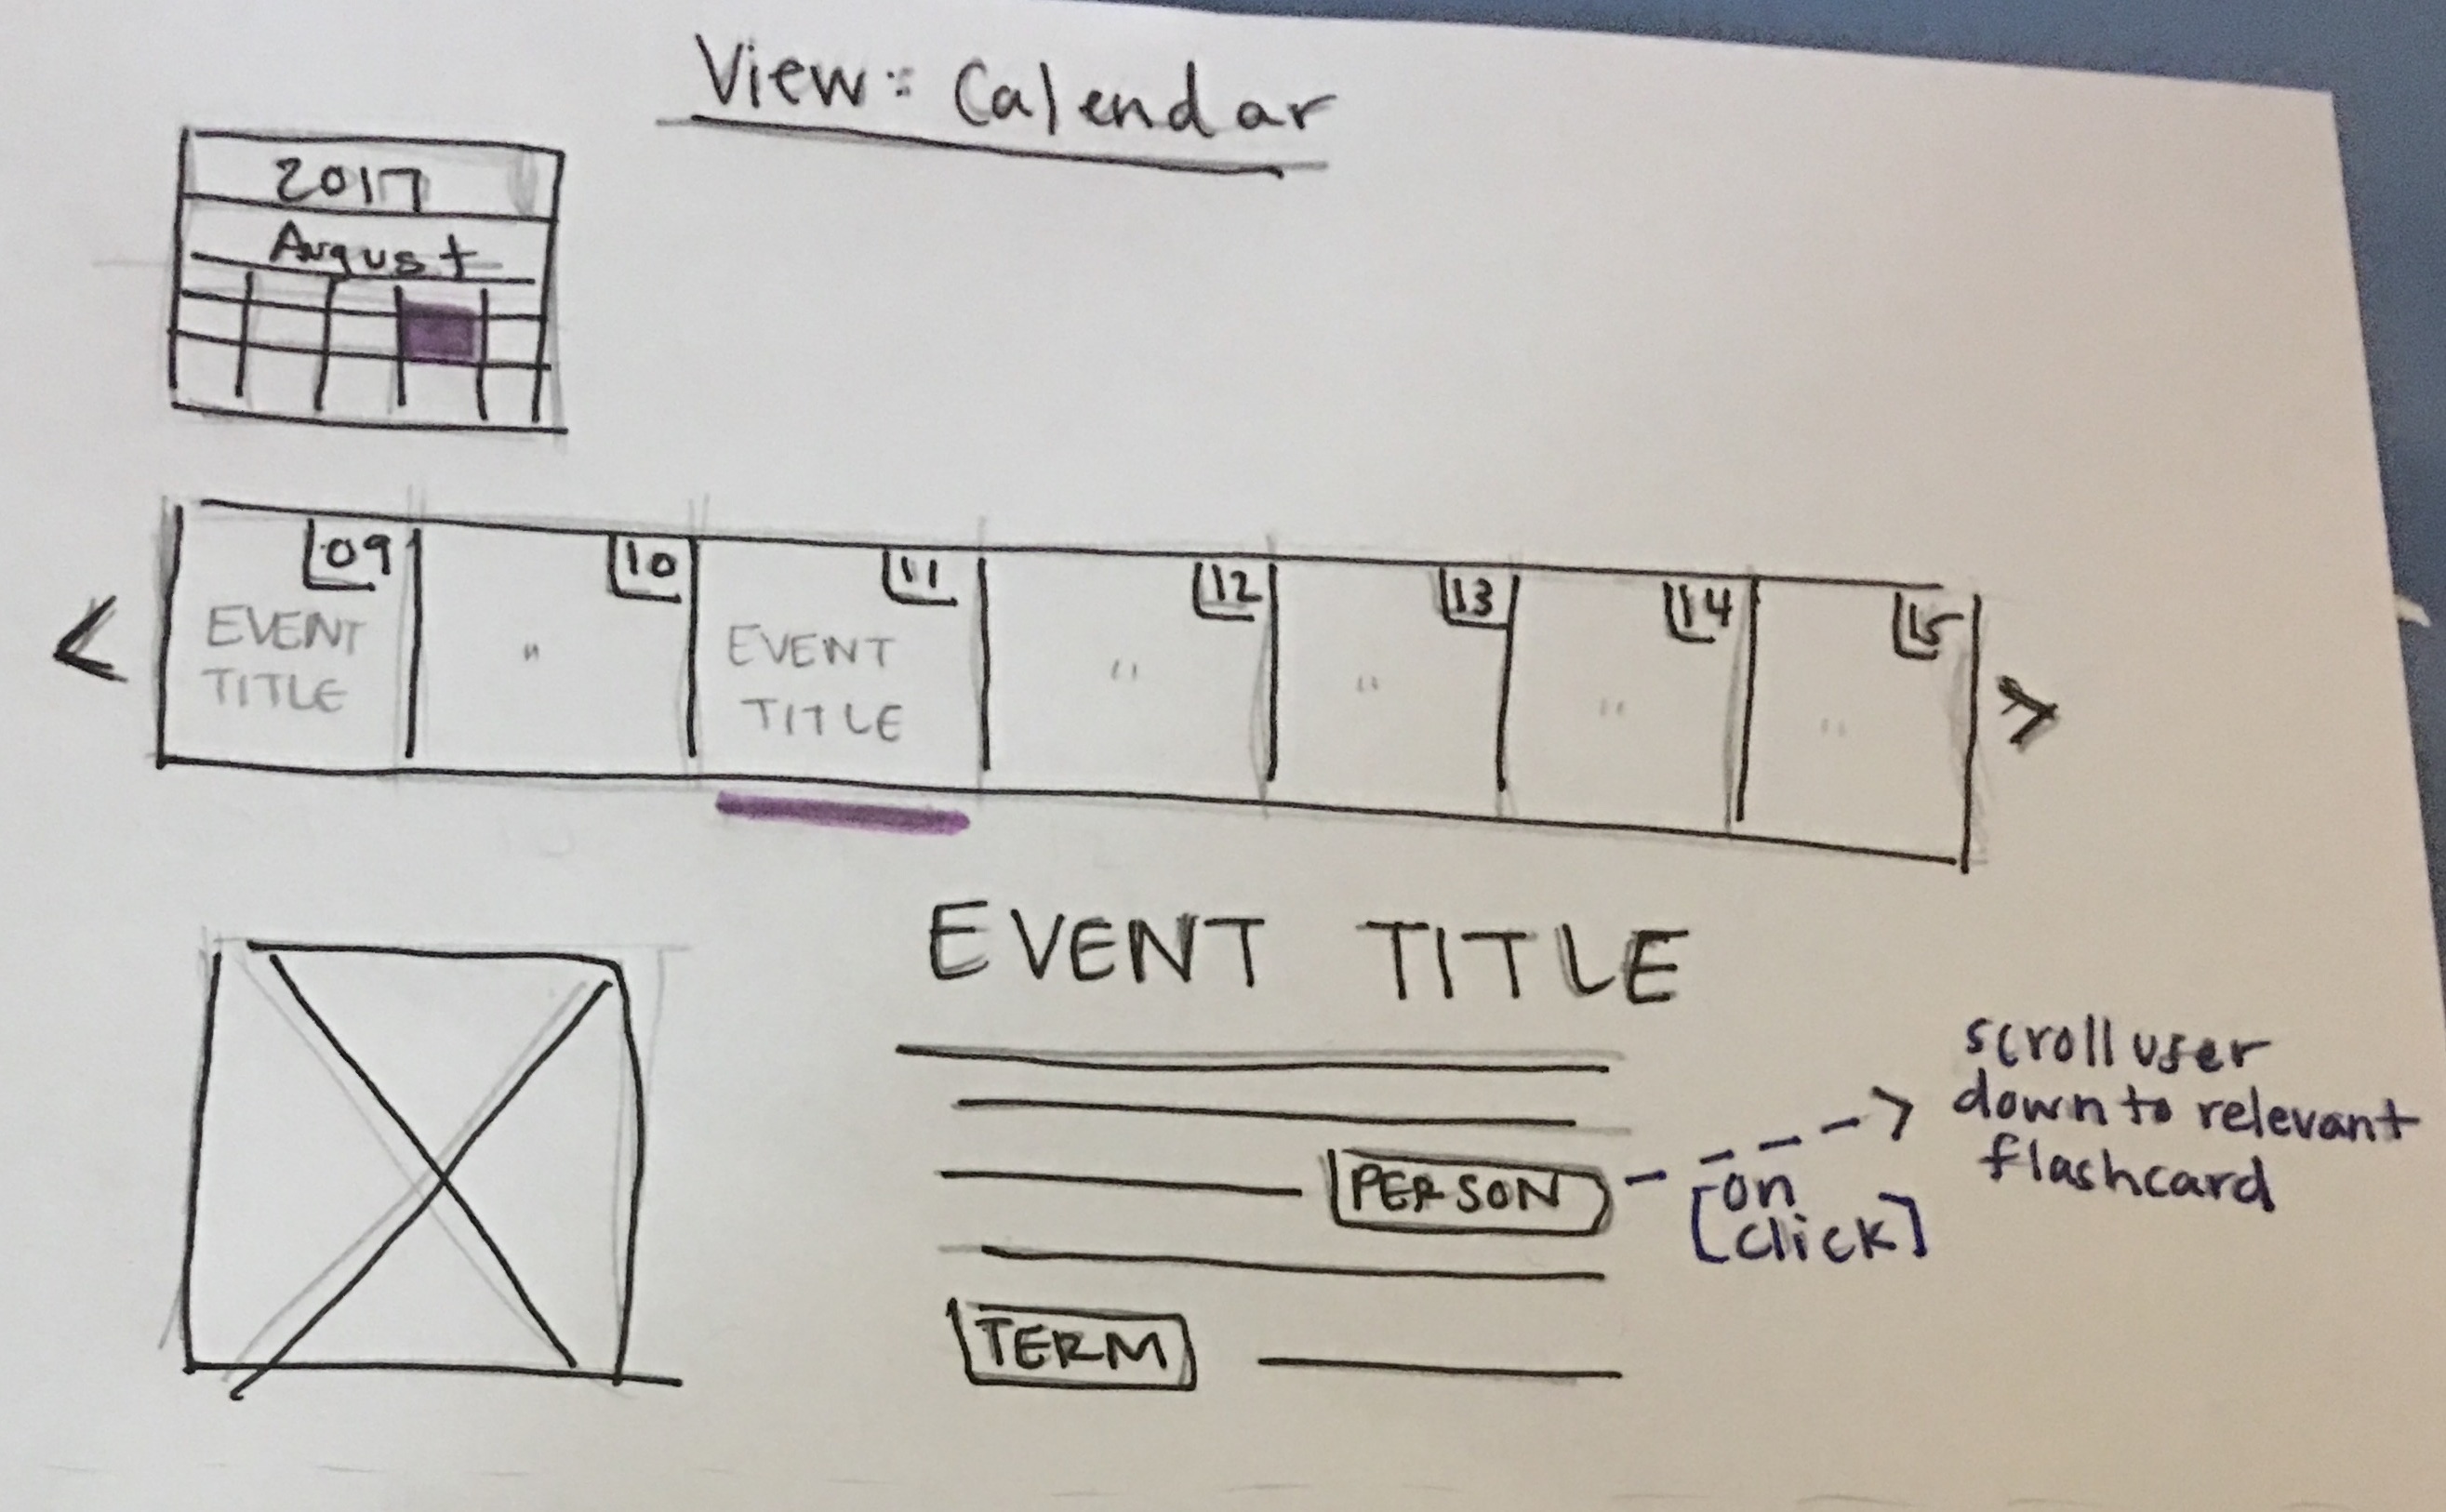 View: Calendar
2017
August
09
10
11
12
13
14
15
<
EVENT
TITLE
"
EVENT
TITLE
"
"
"
"
>
EVENT TITLE
PERSON
TERM
[on
click]
scroll user
down to relevant
flashcard